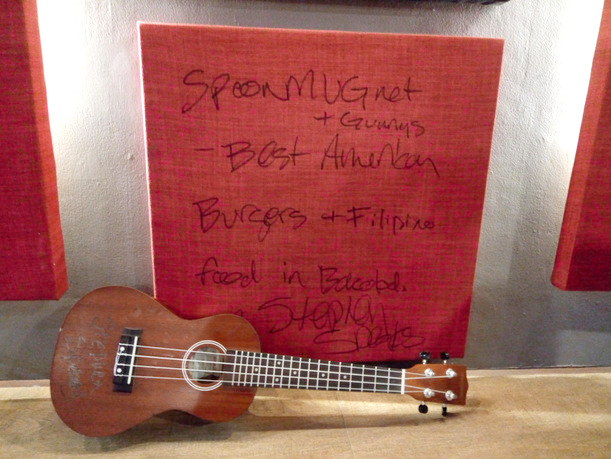 SpoonMUGnet
+ Gunnys
- Best American
Burgers + Filipino
food in Bacolod.
Stephen
Speaks